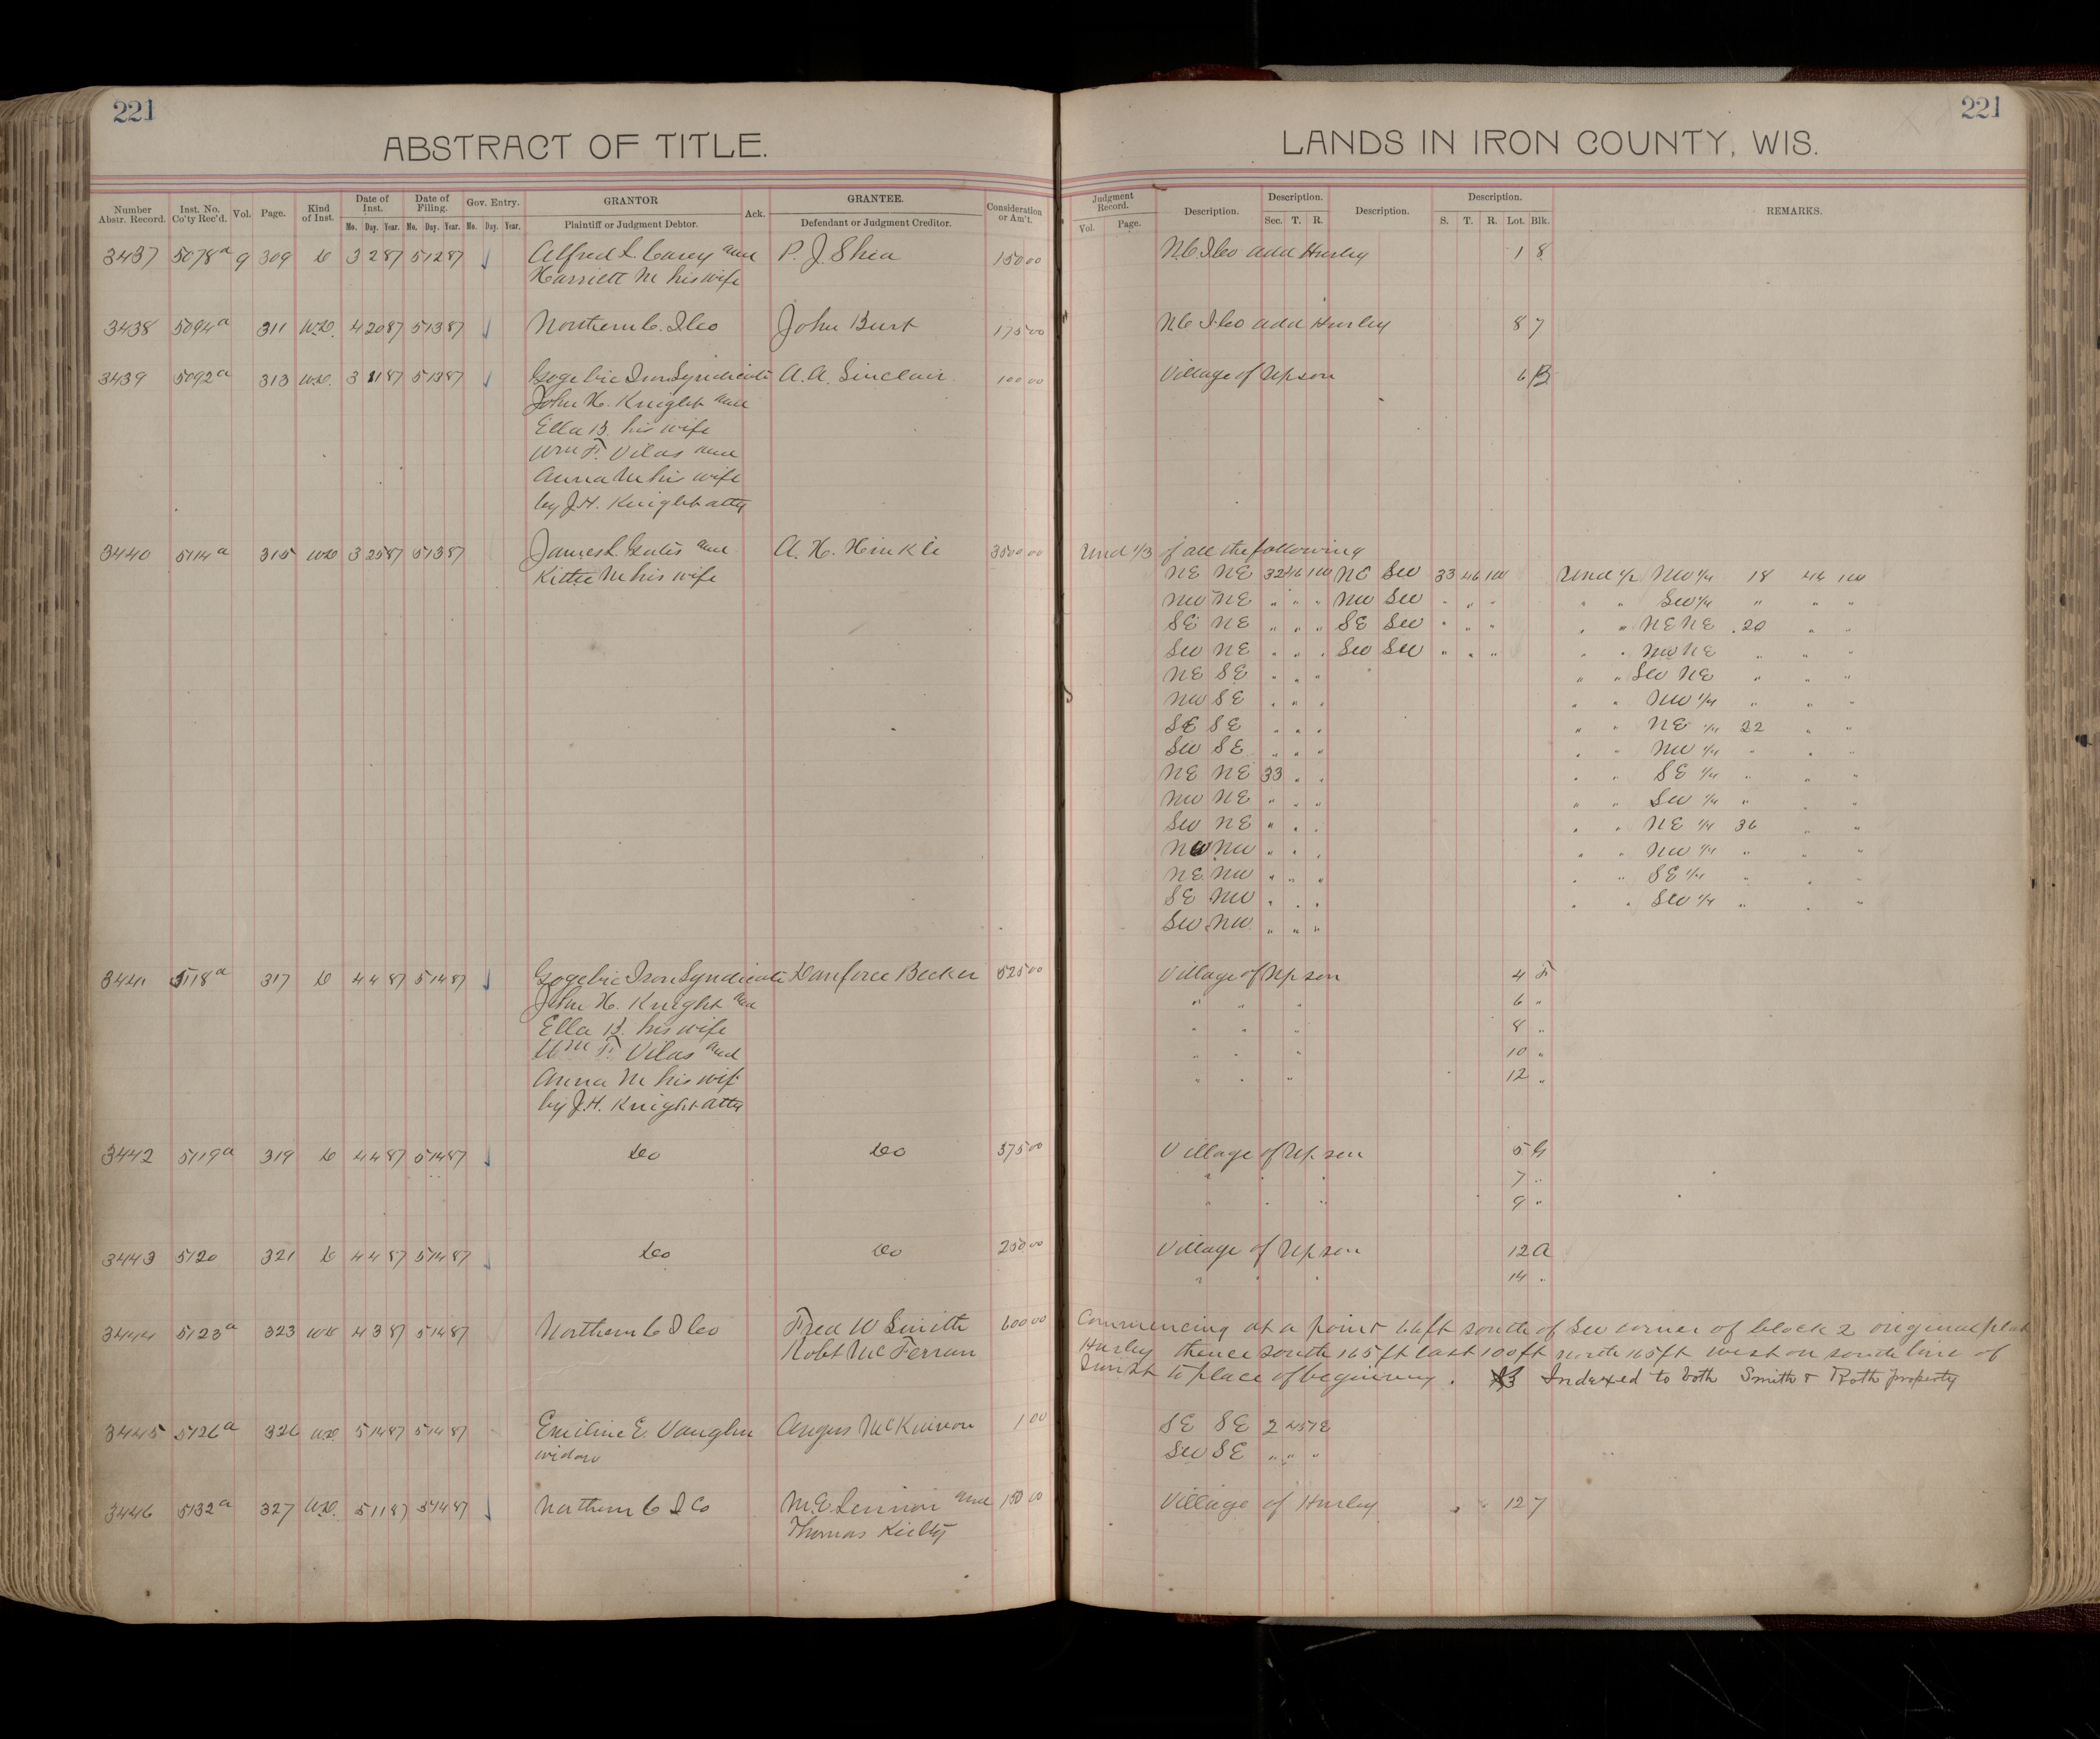 221
ABSTRACT OF TITLE.
Number Abstr. Record. Inst. No. Co'ty Rec'd. Vol. Page. Kind of Inst. Date of Inst. Date of Filing. Gov. Entry. GRANTOR Ack. GRANTEE. Consideration or Am't.
Mo. Day. Year. Mo. Day. Year. Mo. Day. Year. Plaintiff or Judgment Debtor. Defendant or Judgment Creditor.
3437 5078a 9 309 D 3 2 87 5 12 87 Alfred L. Carey and P. J. Shea 150 00
Harriett M his wife
3438 5094a 311 W.D. 4 20 87 5 13 87 Northern C. I. Co John Burt 175 00
3439 5092a 313 W.D. 3 11 87 5 13 87 Gogebic Iron Syndicate A. A. Sinclair 100 00
John H. Knight and
Ella B. his wife
Wm F. Vilas and
Anna M his wife
by J. H. Knight atty
3440 5114a 315 WD 3 25 87 5 13 87 James L. Gates and A. H. Hinkle 3500 00
Kittie M his wife
3441 5118a 317 D 4 4 87 5 14 87 Gogebic Iron Syndicate Danforce Becker 525 00
John H. Knight and
Ella B. his wife
Wm F. Vilas and
Anna M his wife
by J. H. Knight atty
3442 5119a 319 D 4 4 87 5 14 87 Do Do 375 00
3443 5120 321 D 4 4 87 5 14 87 Do Do 250 00
3444 5123a 323 WD 4 3 87 5 14 87 Northern C I Co Fred W Smith 600 00
Robt McFerran
3445 5126a 326 WD. 5 14 87 5 14 87 Emiline E. Vaughn Angus McKinnon 1 00
widow
3446 5132a 327 W.D. 5 11 87 5 14 87 Northern C I Co M. E. Lennon and 150 00
Thomas Kielty
221
LANDS IN IRON COUNTY, WIS.
Judgment Record. Description. Description. Description. Description. REMARKS.
Vol. Page. Sec. T. R. S. T. R. Lot. Blk.
N. C. I. Co add Hurley 1 8
N C I. Co add Hurley 8 7
Village of Upson 6 B
Und 1/3 of all the following
NE NE 32 46 1W NE SW 33 46 1W Und 1/2 NW 1/4 18 46 1W
NW NE " " " NW SW " " " " " SW 1/4 " " "
SE NE " " " SE SW " " " " " NE NE 20 " "
SW NE " " " SW SW " " " " " NW NE " " "
NE SE " " " " " SW NE " " "
NW SE " " " " " NW 1/4 " " "
SE SE " " " " " NE 1/4 22 " "
SW SE " " " " " NW 1/4 " " "
NE NE 33 " " " " SE 1/4 " " "
NW NE " " " " " SW 1/4 " " "
SW NE " " " " " NE 1/4 36 " "
NW NW " " " " " NW 1/4 " " "
NE NW " " " " " SE 1/4 " " "
SE NW " " " " " SW 1/4 " " "
SW NW " " "
Village of Upson 4 F
" " " 6 "
" " " 8 "
" " " 10 "
" " " 12 "
Village of Upson 5 G
" " " 7 "
" " " 9 "
Village of Upson 12 A
" " " 14 "
Commencing at a point 66 ft south of SW corner of block 2 original plat
Hurley thence south 165 ft East 100 ft north 165 ft west on south line of
to place of beginning. Indexed to both Smith & Roth property
SE SE 2 45 1E
SW SE " " "
Village of Hurley " " 12 7